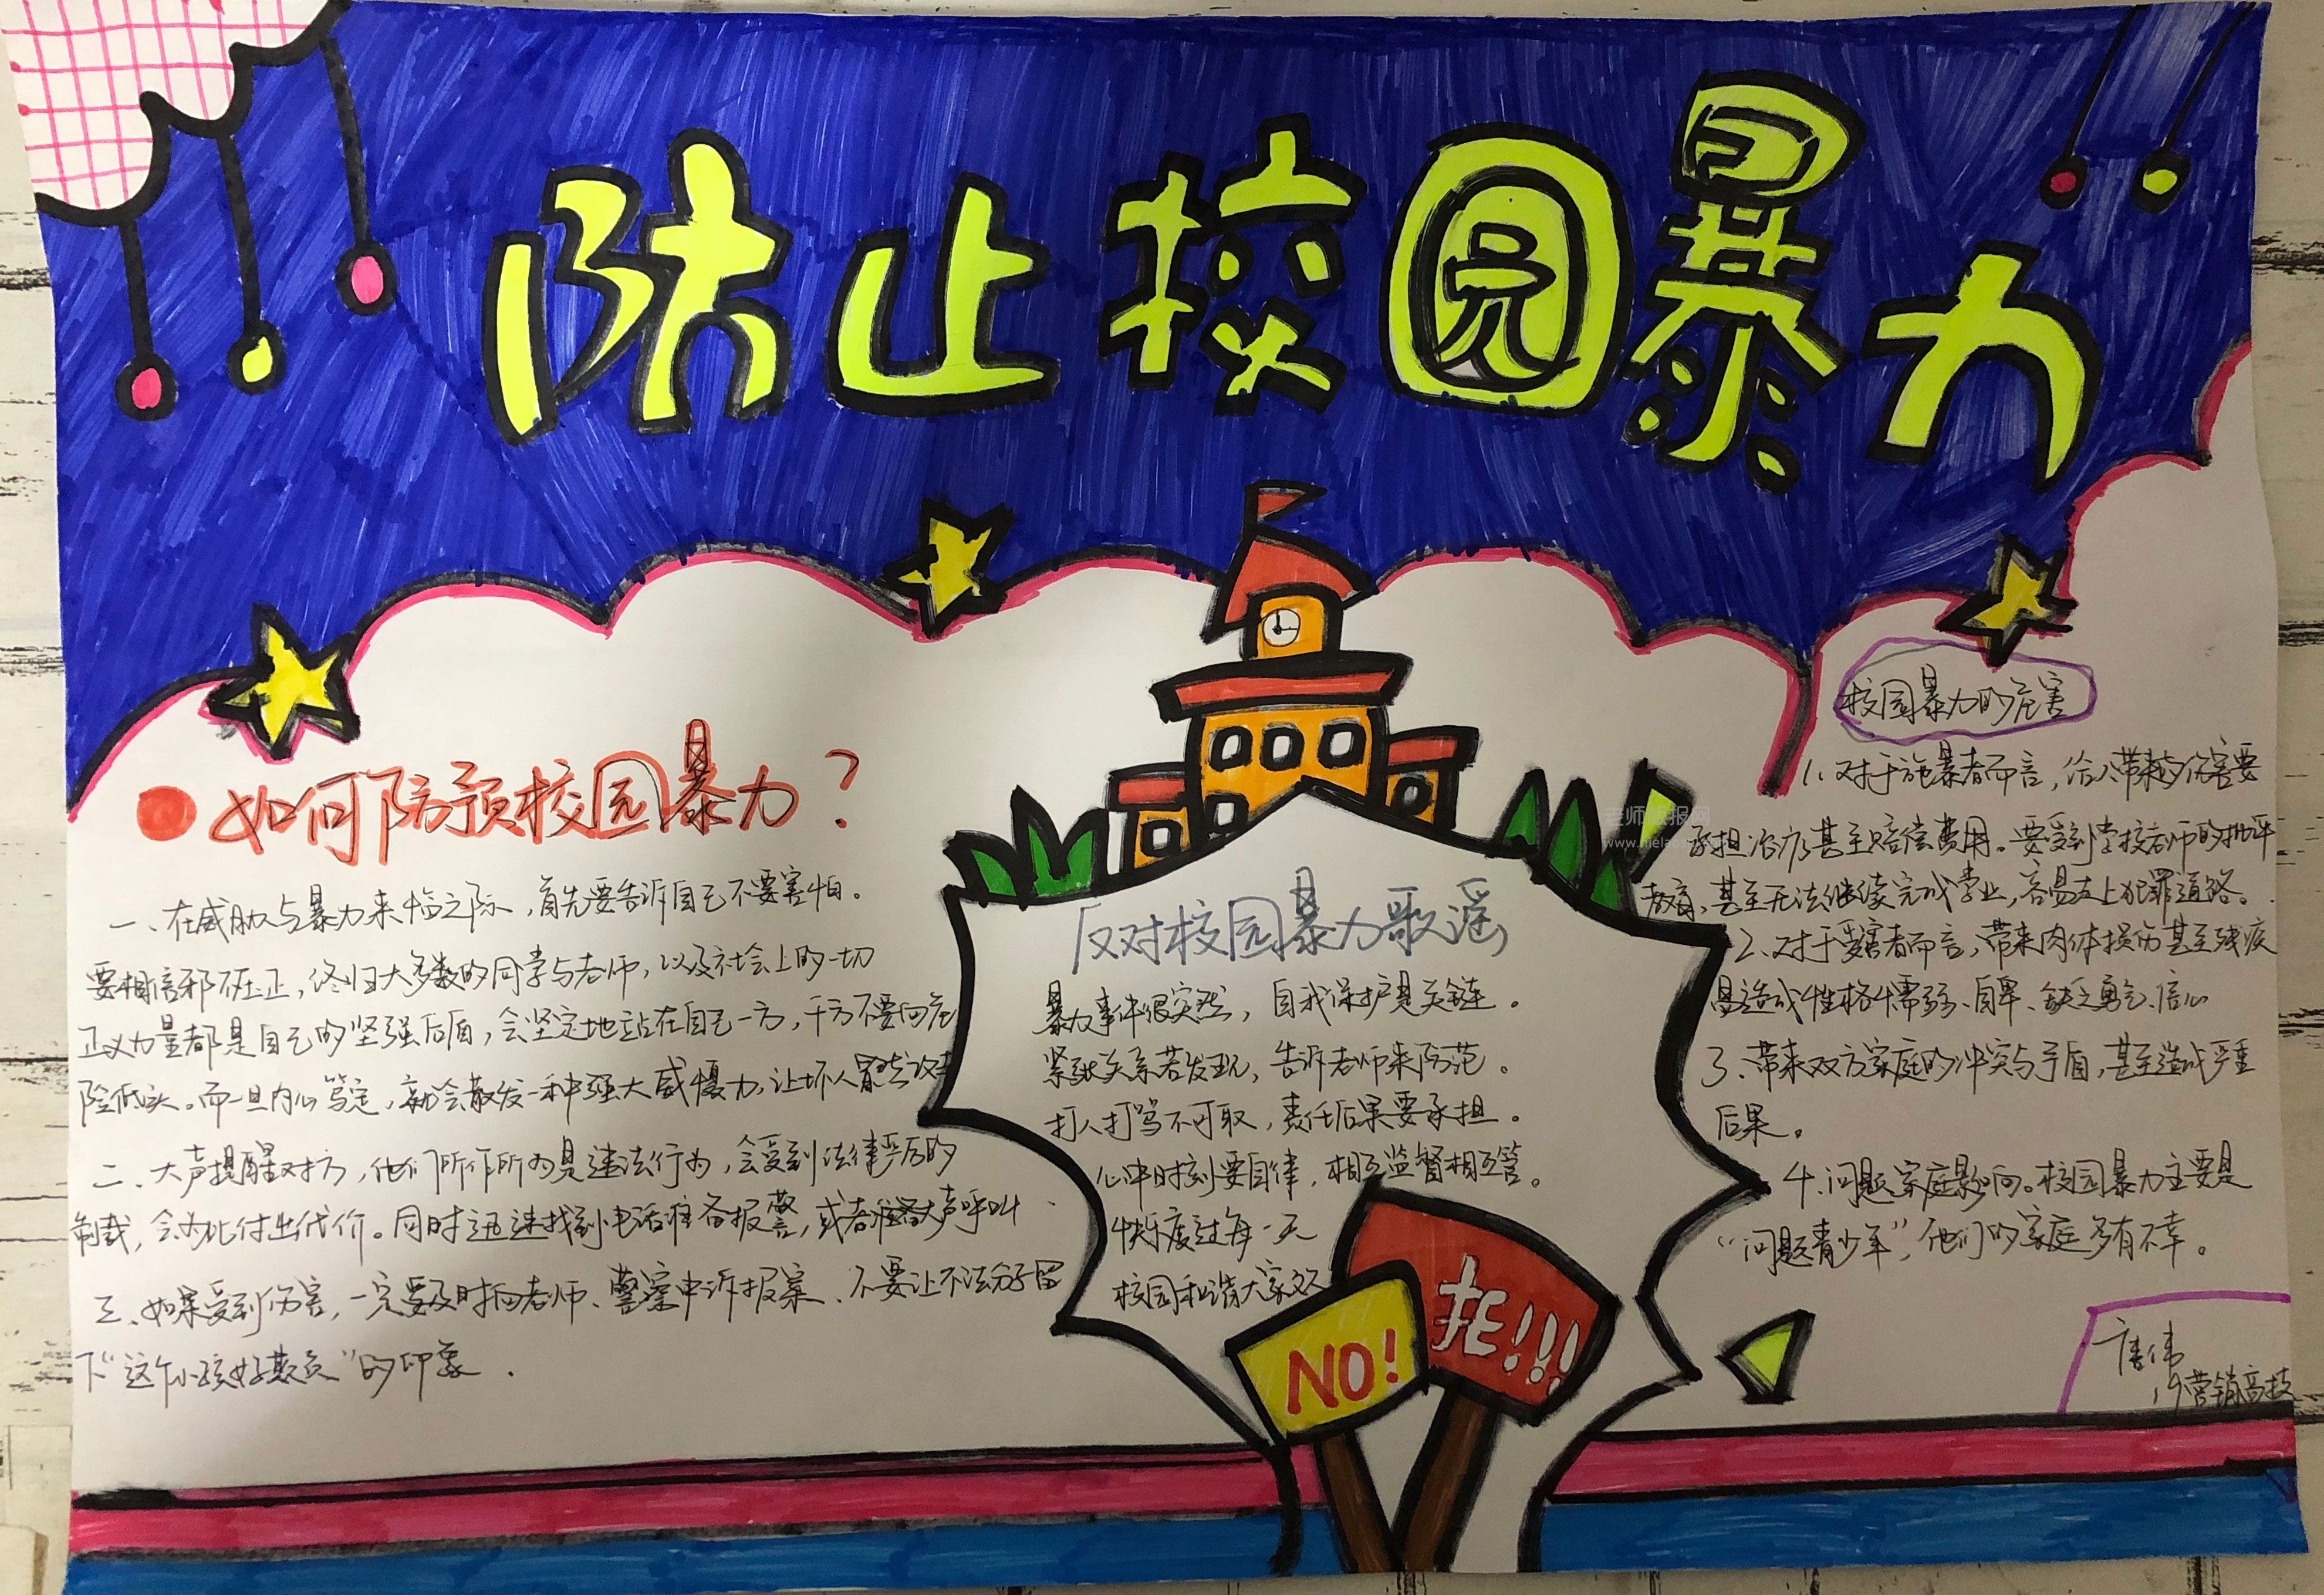 防止校园暴力
如何防预校园暴力？
一、在威胁与暴力来临之际，首先要告诉自己不要害怕。
要相信邪不压正，终归大多数的同学与老师，以及社会上的一切
正义力量都是自己的坚强后盾，会坚定地站在自己一方，千万不要向危
险低头。而一旦内心笃定，就会散发一种强大威慑力，让坏人
二、大声提醒对方，他们所作所为是违法行为，会受到法律严厉的
制裁，会为此付出代价。同时迅速找到电话准备报警，或者准备大声呼叫
三、如果受到伤害，一定要及时向老师、警察申诉报案、不要让不法分子留
下“这个小孩好欺负”的印象．
反对校园暴力歌谣
暴力事件很突然，自我保护是关键．
紧张关系若发现，告诉老师来防范．
打人打骂不可取，责任后果要承担．
心中时刻要自律，相互监督相互管。
快乐度过每一天
校园和谐大家欢
NO！
拒！！！
校园暴力的危害
1、对于施暴者而言，给人带来的伤害要
承担治疗甚至赔偿费用。要受到学校老师的批评
教育，甚至无法继续完成学业，容易走上犯罪道路。
2、对于受害者而言，带来肉体损伤甚至残疾
易造成性格懦弱、自卑、缺乏勇气、信心
3、带来双方家庭的冲突与矛盾，甚至造成严重
后果。
4、问题家庭影响。校园暴力主要是
“问题青少年”，他们的家庭多有不幸。
唐伟
营销高技